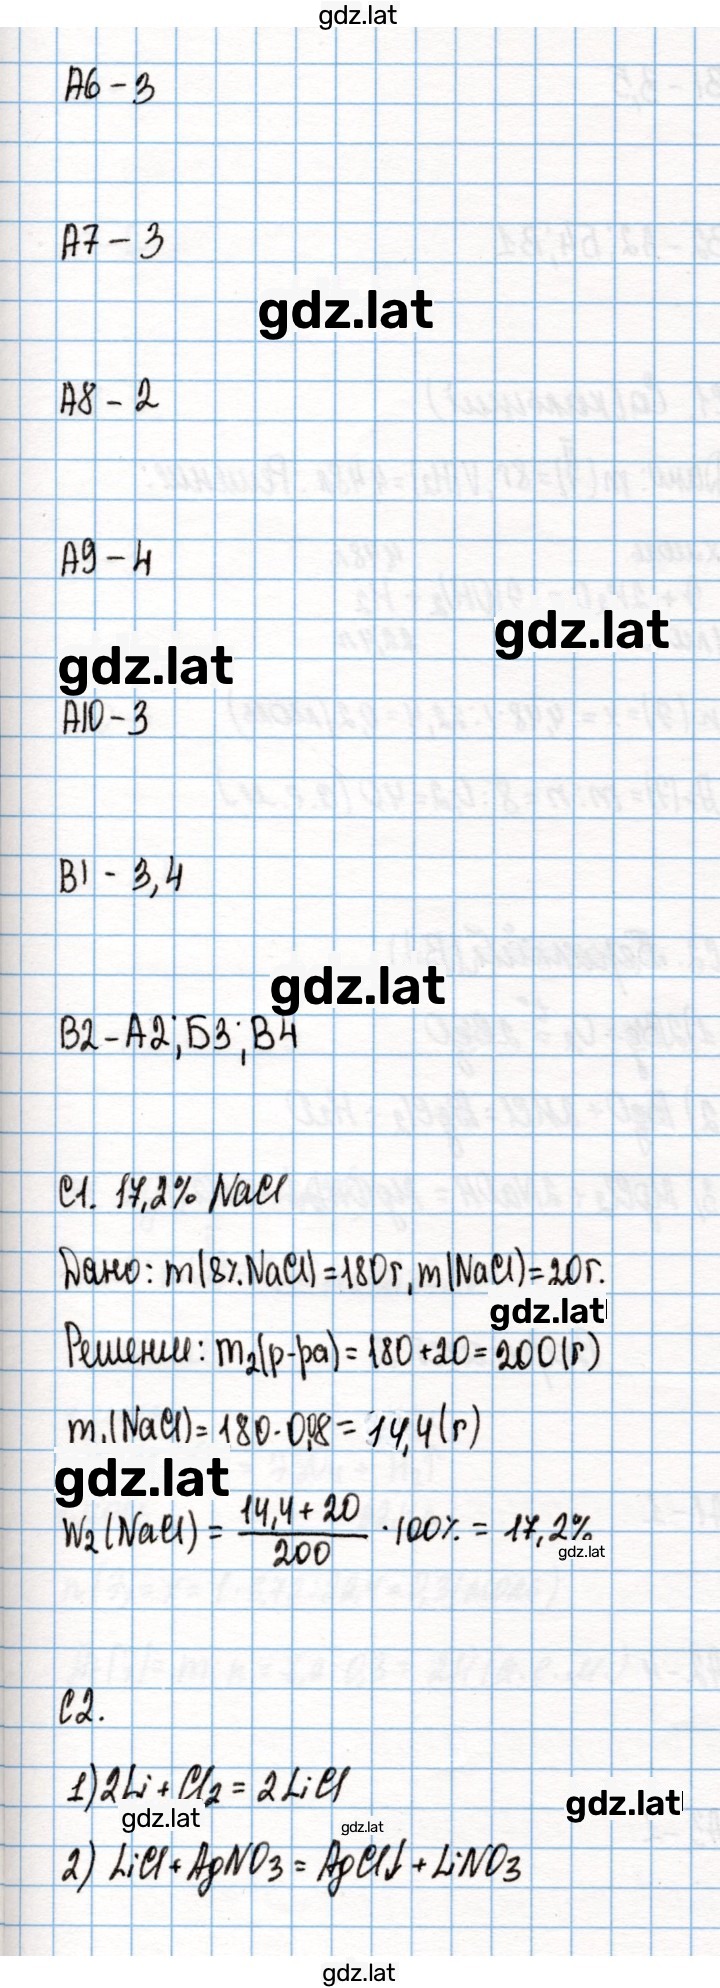 gdz.lat
А6 - 3
А7 - 3
gdz.lat
А8 - 2
А9 - 4
gdz.lat
gdz.lat
А10 - 3
В1 - 3,4
gdz.lat
В2 - А2; Б3; В4
С1. 17,2% NaCl
Дано: m(8%NaCl)=180г, m(NaCl)=20г.
gdz.lat
Решение: m₂(р-ра) = 180+20 = 200(г)
m₁(NaCl) = 180·0,08 = 14,4(г)
gdz.lat
W₂(NaCl) = (14,4+20)/200 · 100% = 17,2%
gdz.lat
С2.
1) 2Li + Cl₂ = 2LiCl
gdz.lat
gdz.lat
gdz.lat
2) LiCl + AgNO₃ = AgCl↓ + LiNO₃
gdz.lat